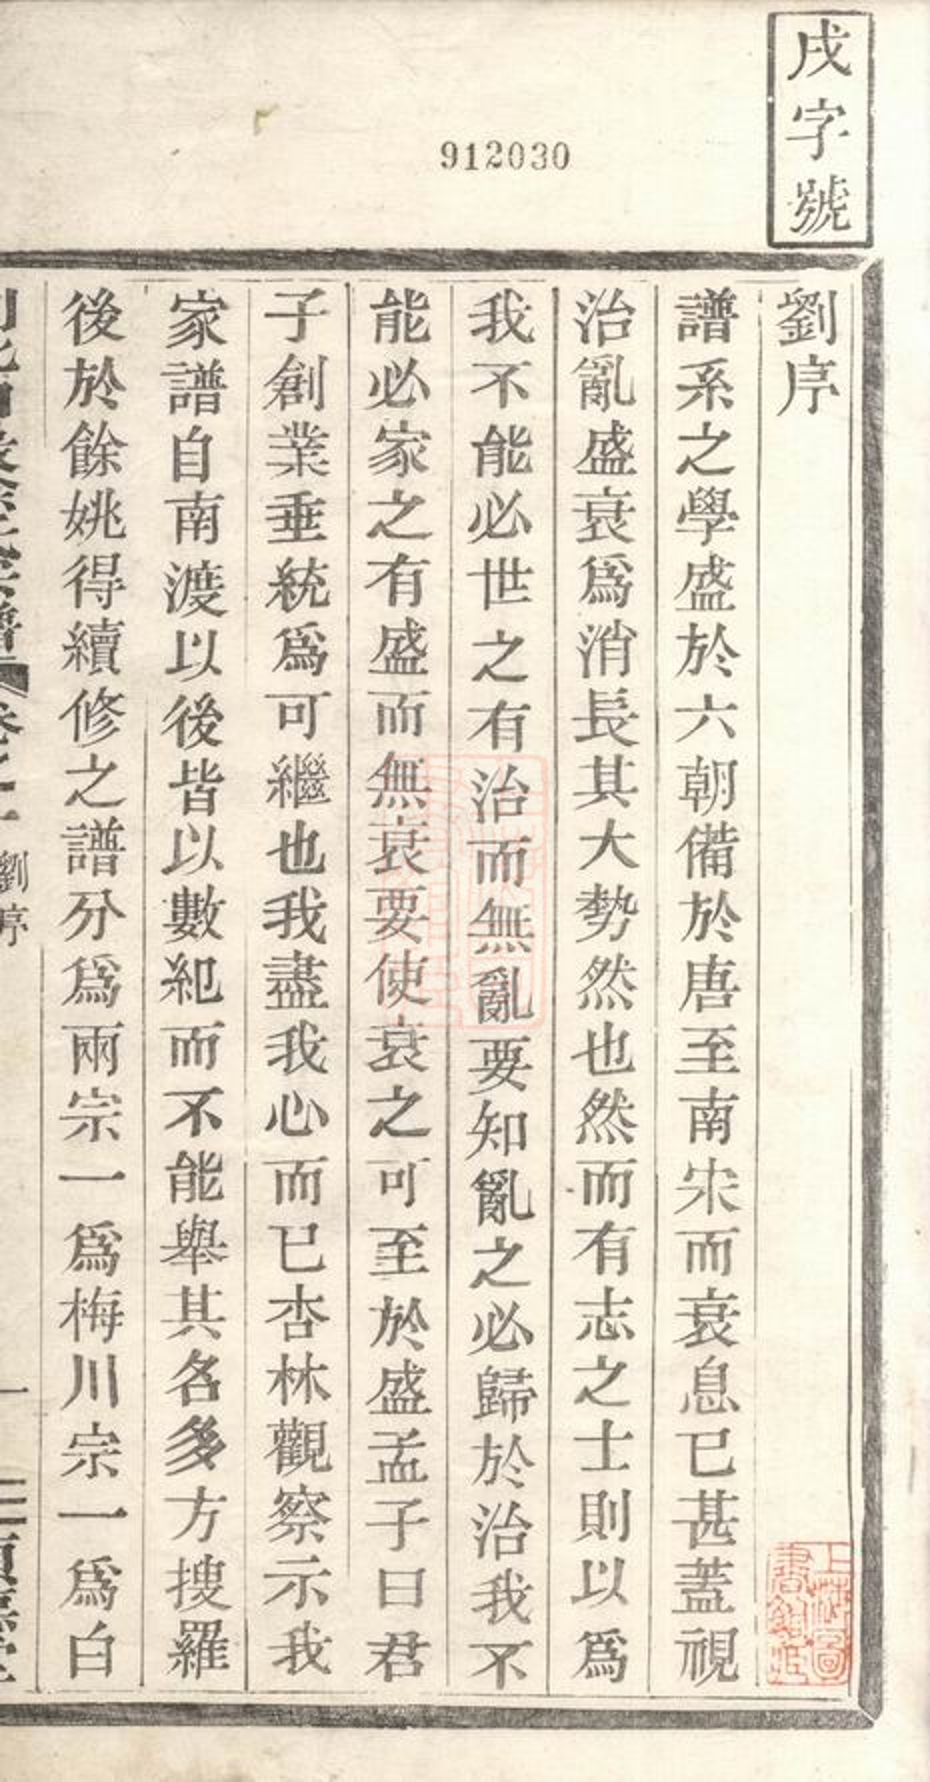 戌字號
912030
劉序
譜系之學盛於六朝備於唐至南宋而衰息已甚蓋視
治亂盛衰爲消長其大勢然也然而有志之士則以爲
我不能必世之有治而無亂要知亂之必歸於治我不
能必家之有盛而無衰要使衰之可至於盛孟子曰君
子創業垂統爲可繼也我盡我心而已杏林觀察示我
家譜自南渡以後皆以數紀而不能舉其名多方搜羅
後於餘姚得續修之譜分爲兩宗一爲梅川宗一爲白
劉序
上海圖書館藏